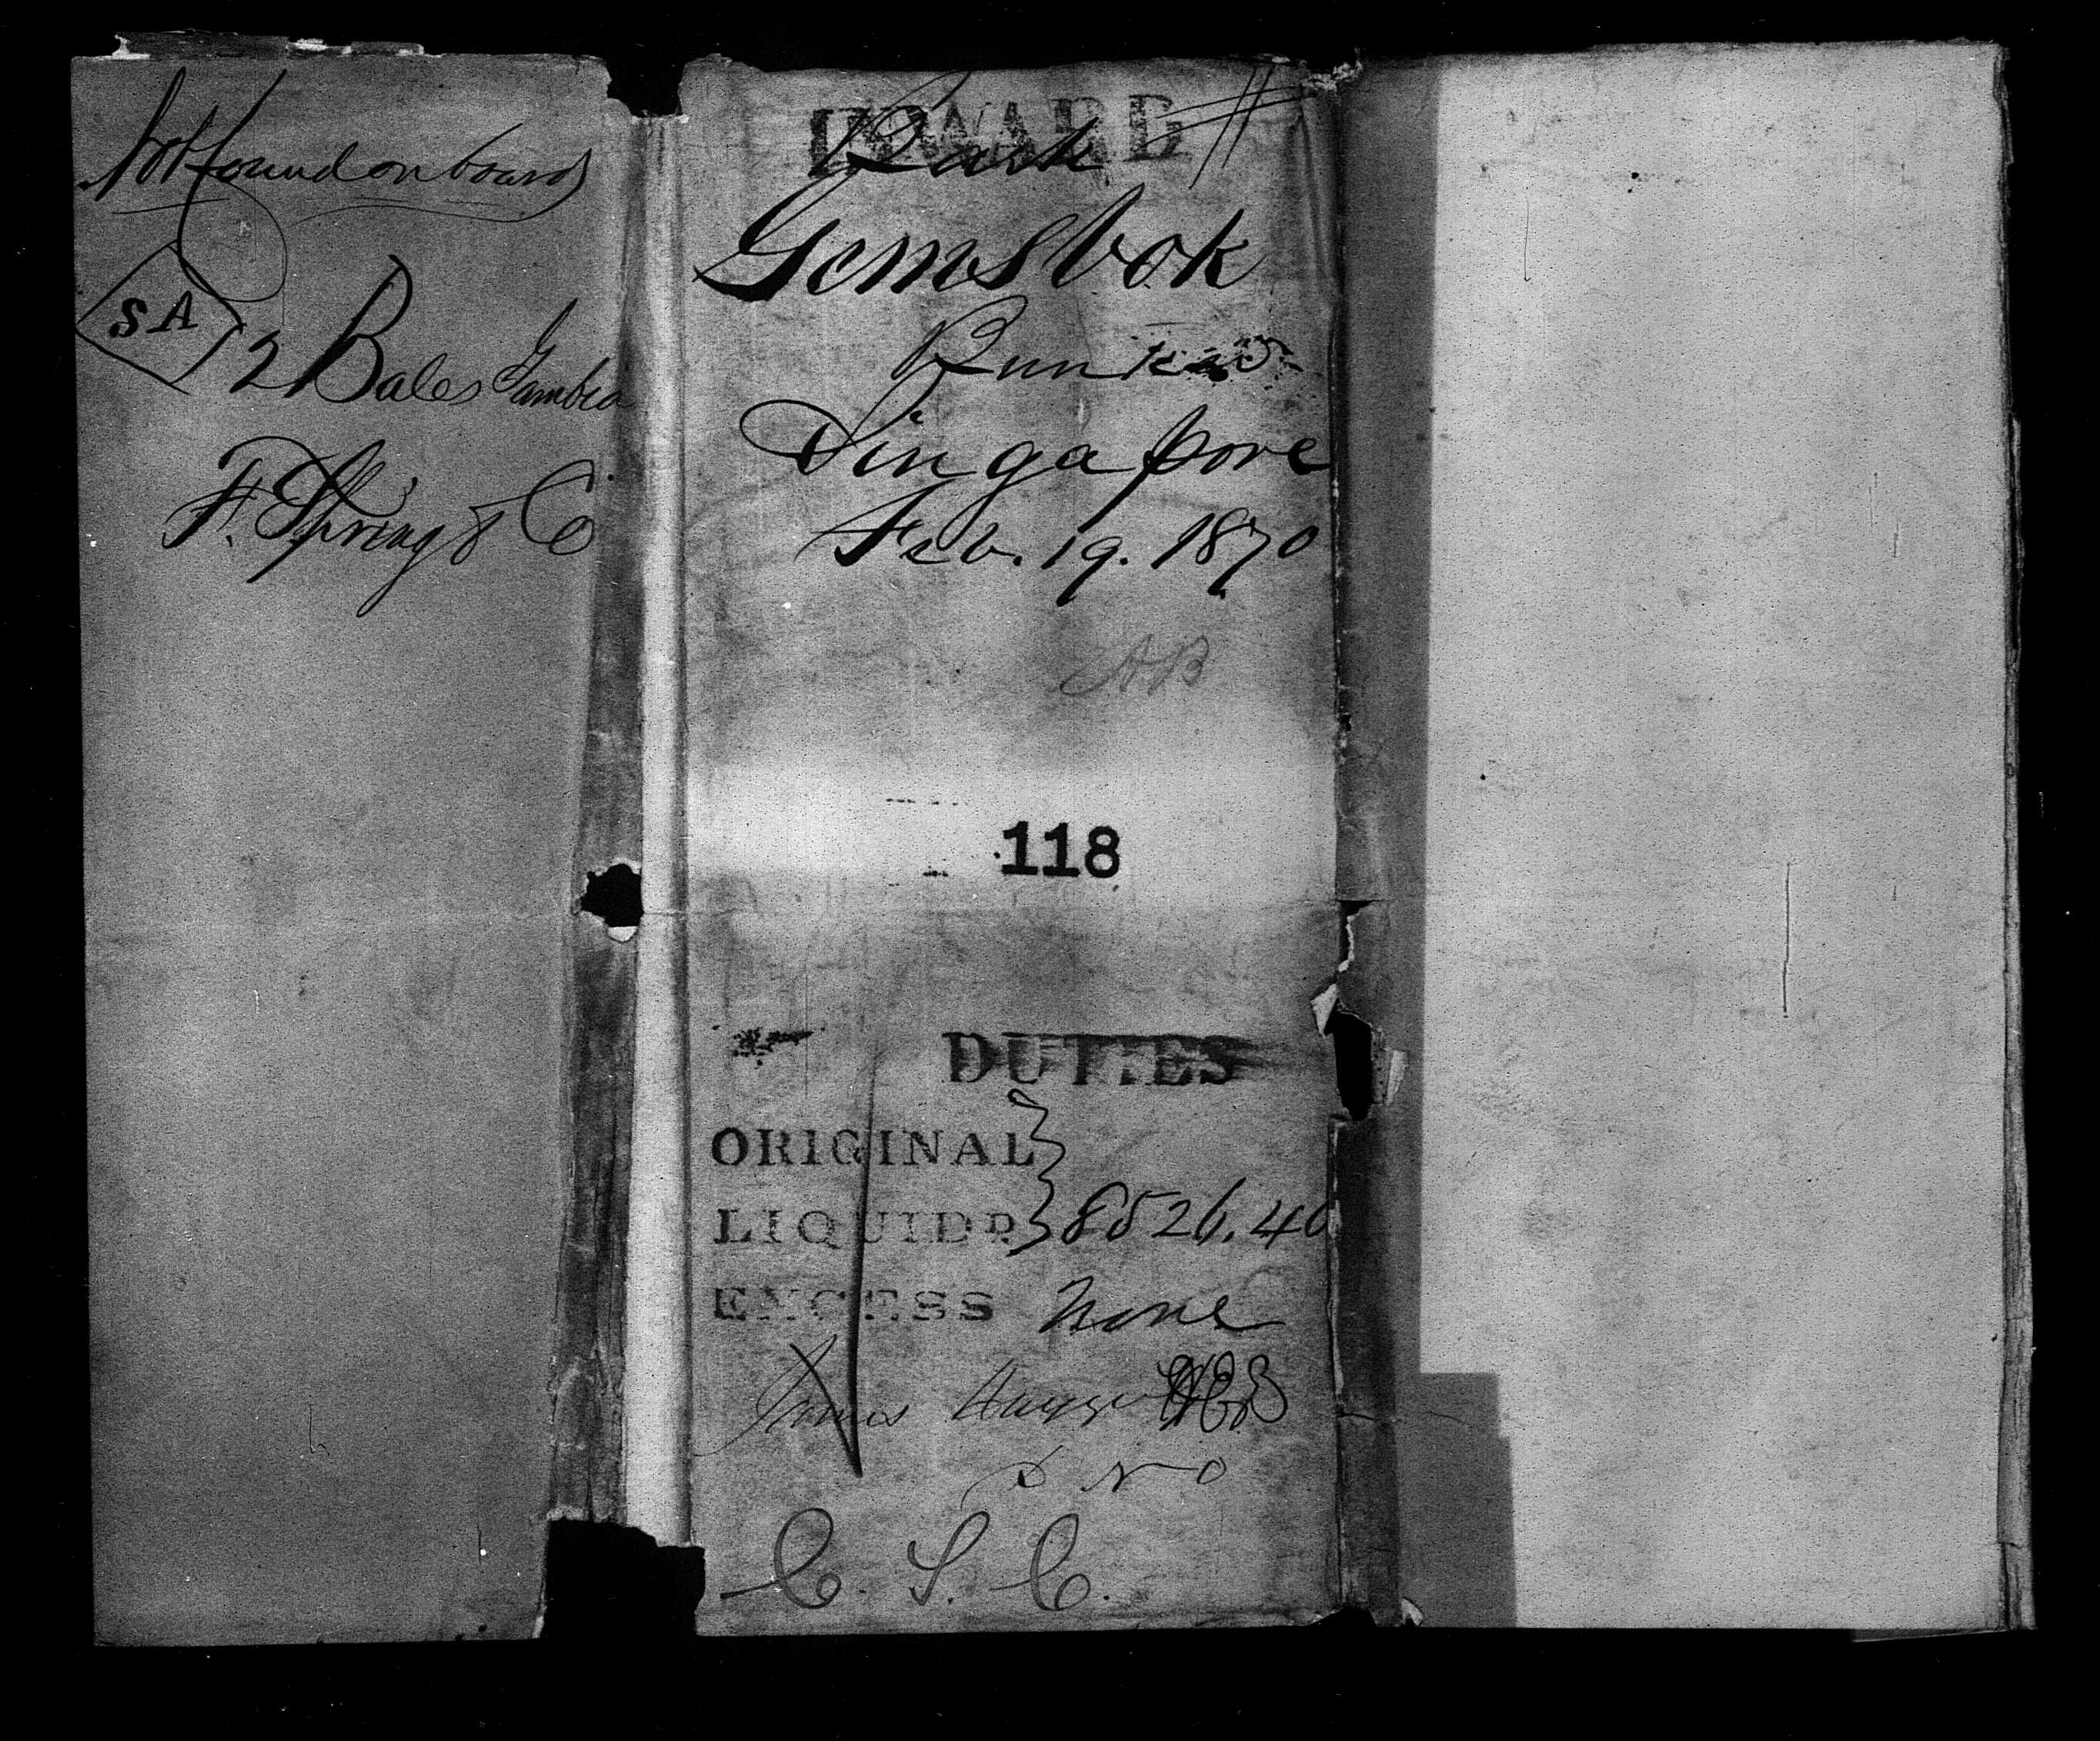 Not found on board
SA
2 Bales Gambia
F. Spring & Co
INWARD
Bark
Gemsbok
Bunker
Singapore
Feb. 19. 1870
AB
118
DUTIES
ORIGINAL
LIQUIDD. } 8526.40
EXCESS none
James
D N O
C. S. C.